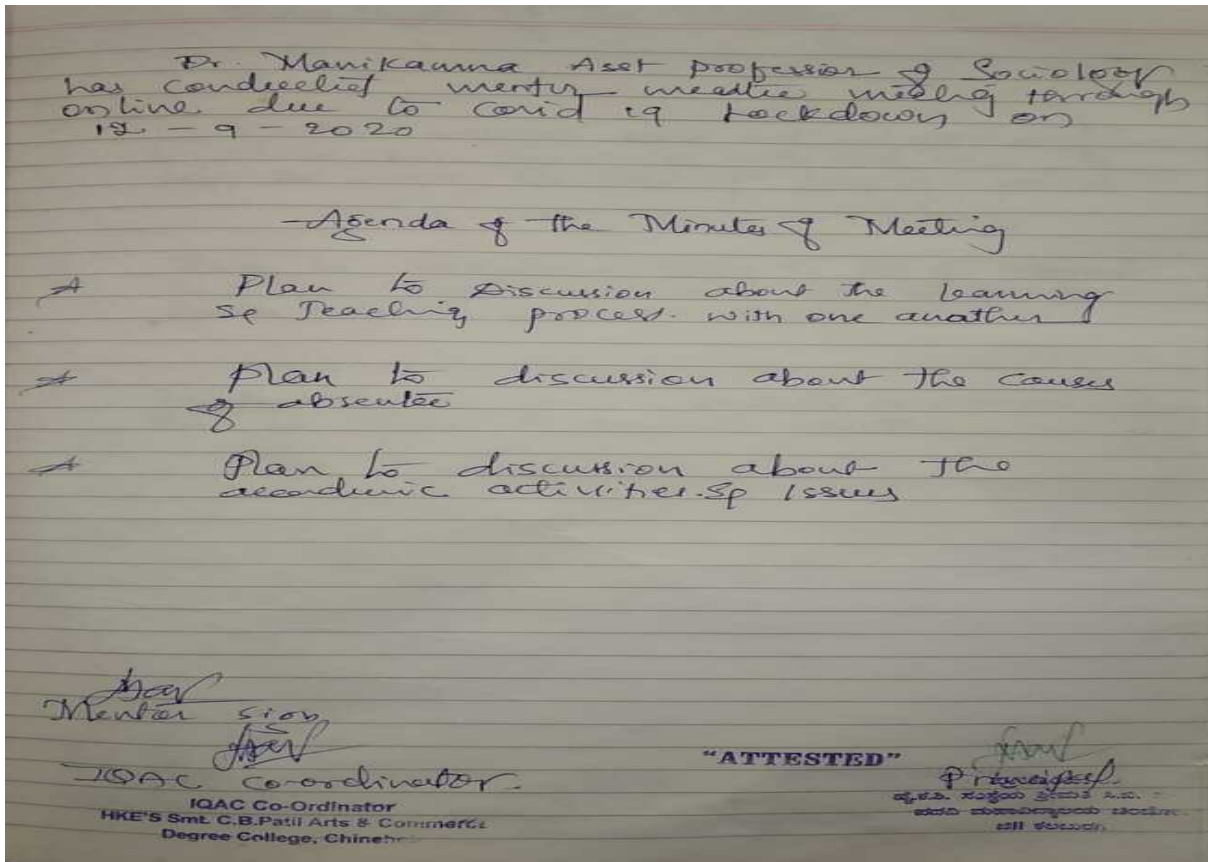 Dr. Manikamna Asst professior of Sociology
has conducted mentor meeting through
online due to covid 19 Lockdown on
12 - 9 - 2020
Agenda of the Minutes of Meeting
Plan to Discussion about the learning
Teaching process. with one anather
plan to discussion about the causes
of absentee
Plan to discussion about the
accademic activities. Issues
Mentor sign
IQAC Co-ordinator.
"ATTESTED"
Principal.
IQAC Co-Ordinator
HKE'S Smt. C.B.Patil Arts & Commerce
Degree College, Chincho